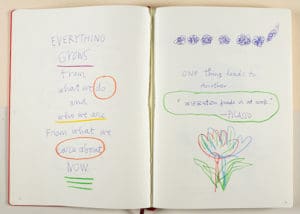 EVERYTHING
GROWS
from
what we do
and
who we are
From what we
care about
NOW
ONE thing leads to
Another
"INSPIRATION finds us at work"
—PICASSO